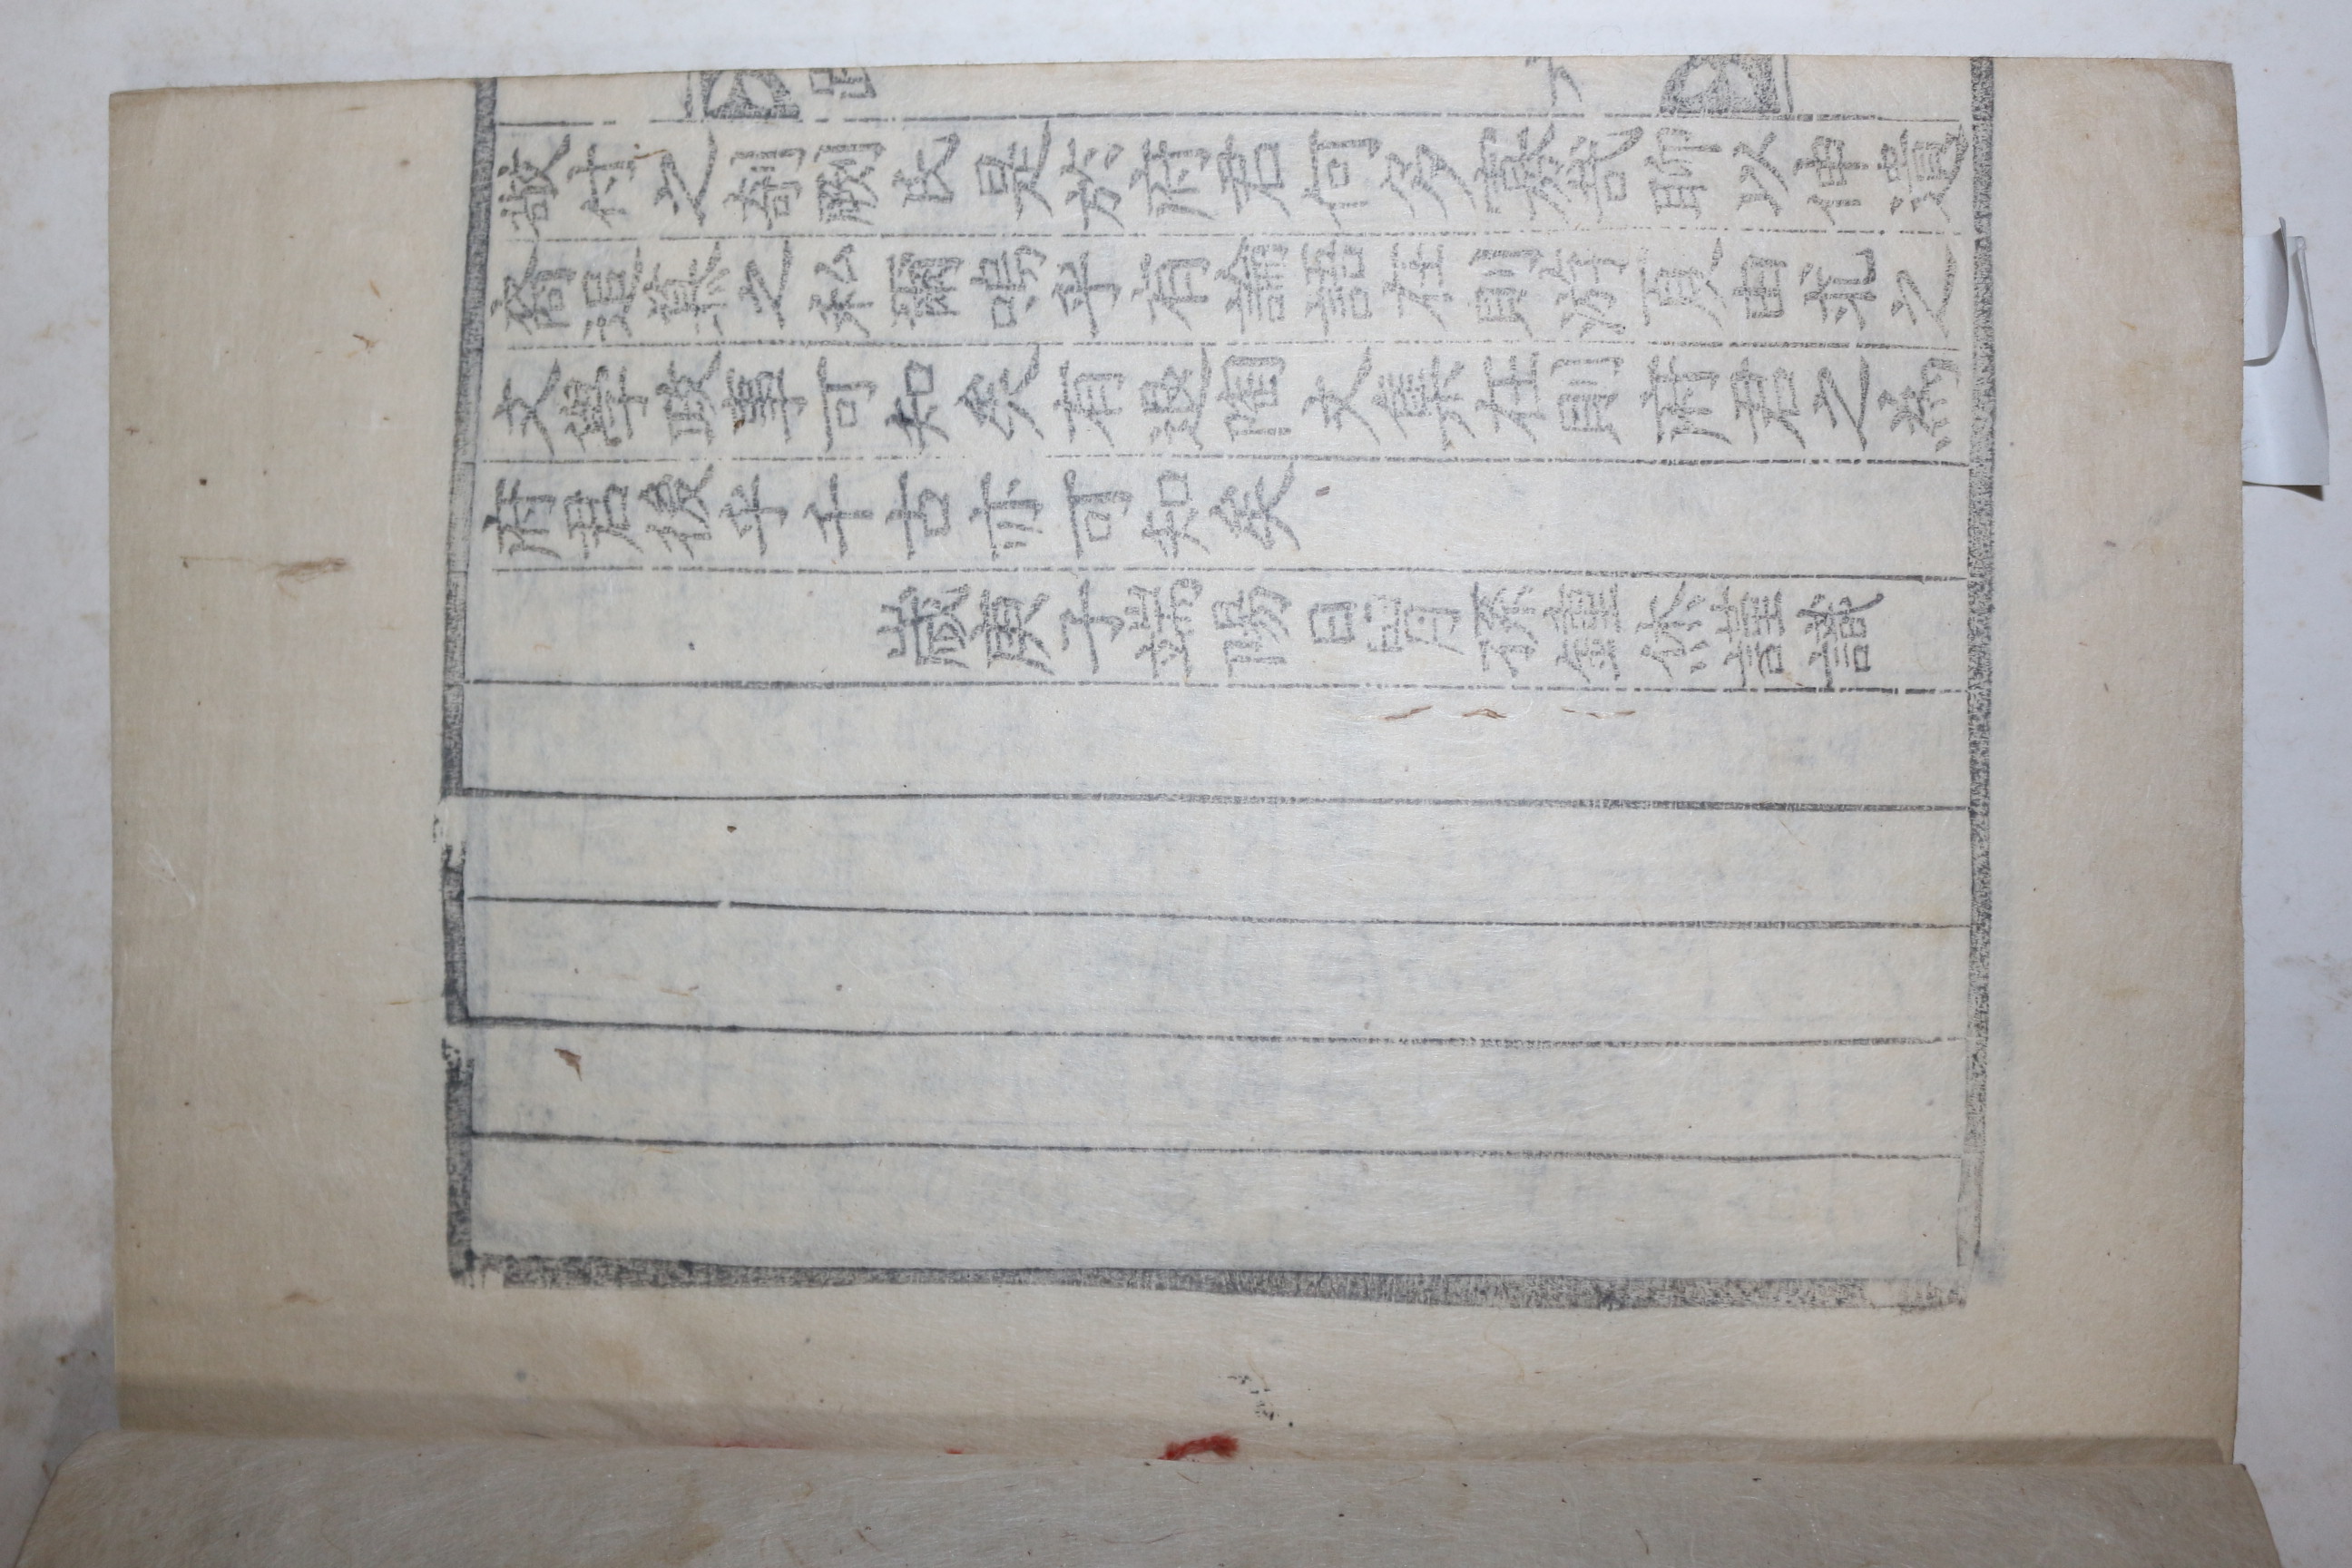 敬付之剞劂氏是於府君何多寡哉聊以伸遺
裔追慕之私爾嗚乎有論語在則游夏由求之
文學政事可知矣有退陶文集在則府君之為
府君後乎千古亦可知矣
歲庚子端陽日胄孫鍾烋謹識